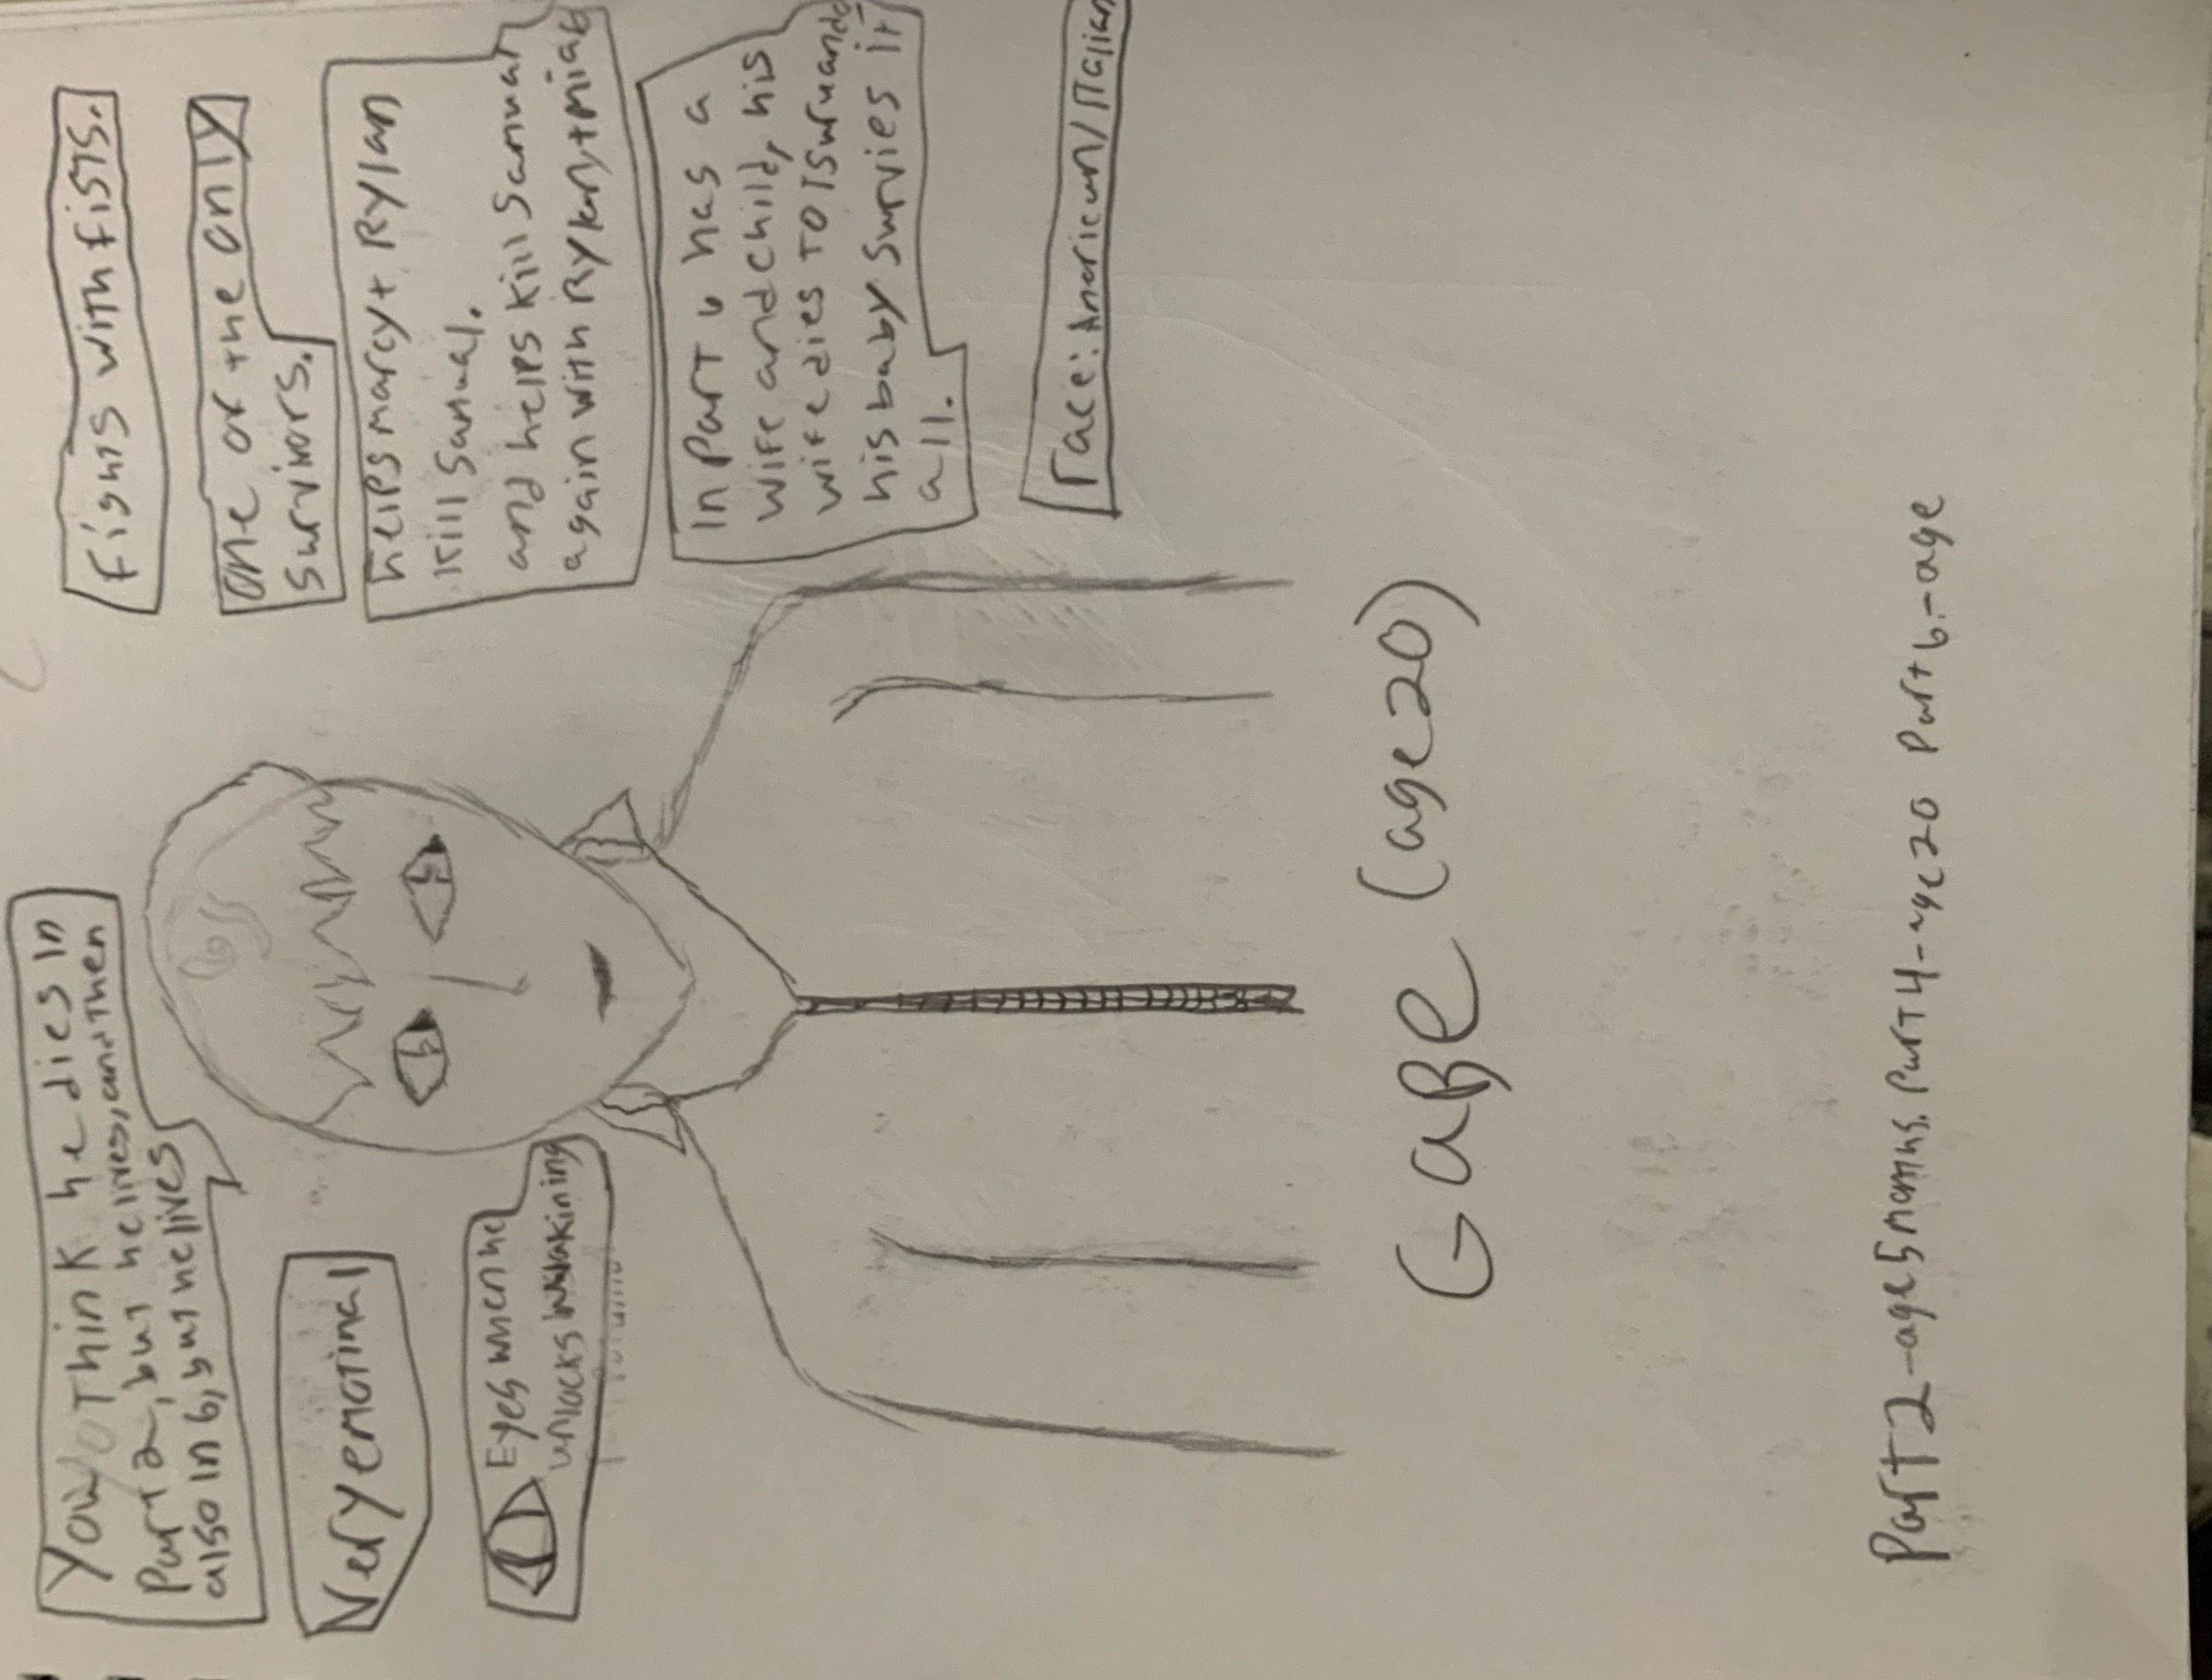 You think he dies in
Part 2, but he lives, and then
also in 6, but he lives
Very emotinal
Eyes when he
unlocks
Fights with fists.
One of the only
survivors.
helps marcy + Rylan
kill Samual.
and helps kill Samual
again with
In Part 6 has a
wife and child, his
wife dies TO
his baby survies it
all.
race: /Italian
GaBe (age 20)
Part 2-age 5 months. Part 4-age 20 Part 6.-age